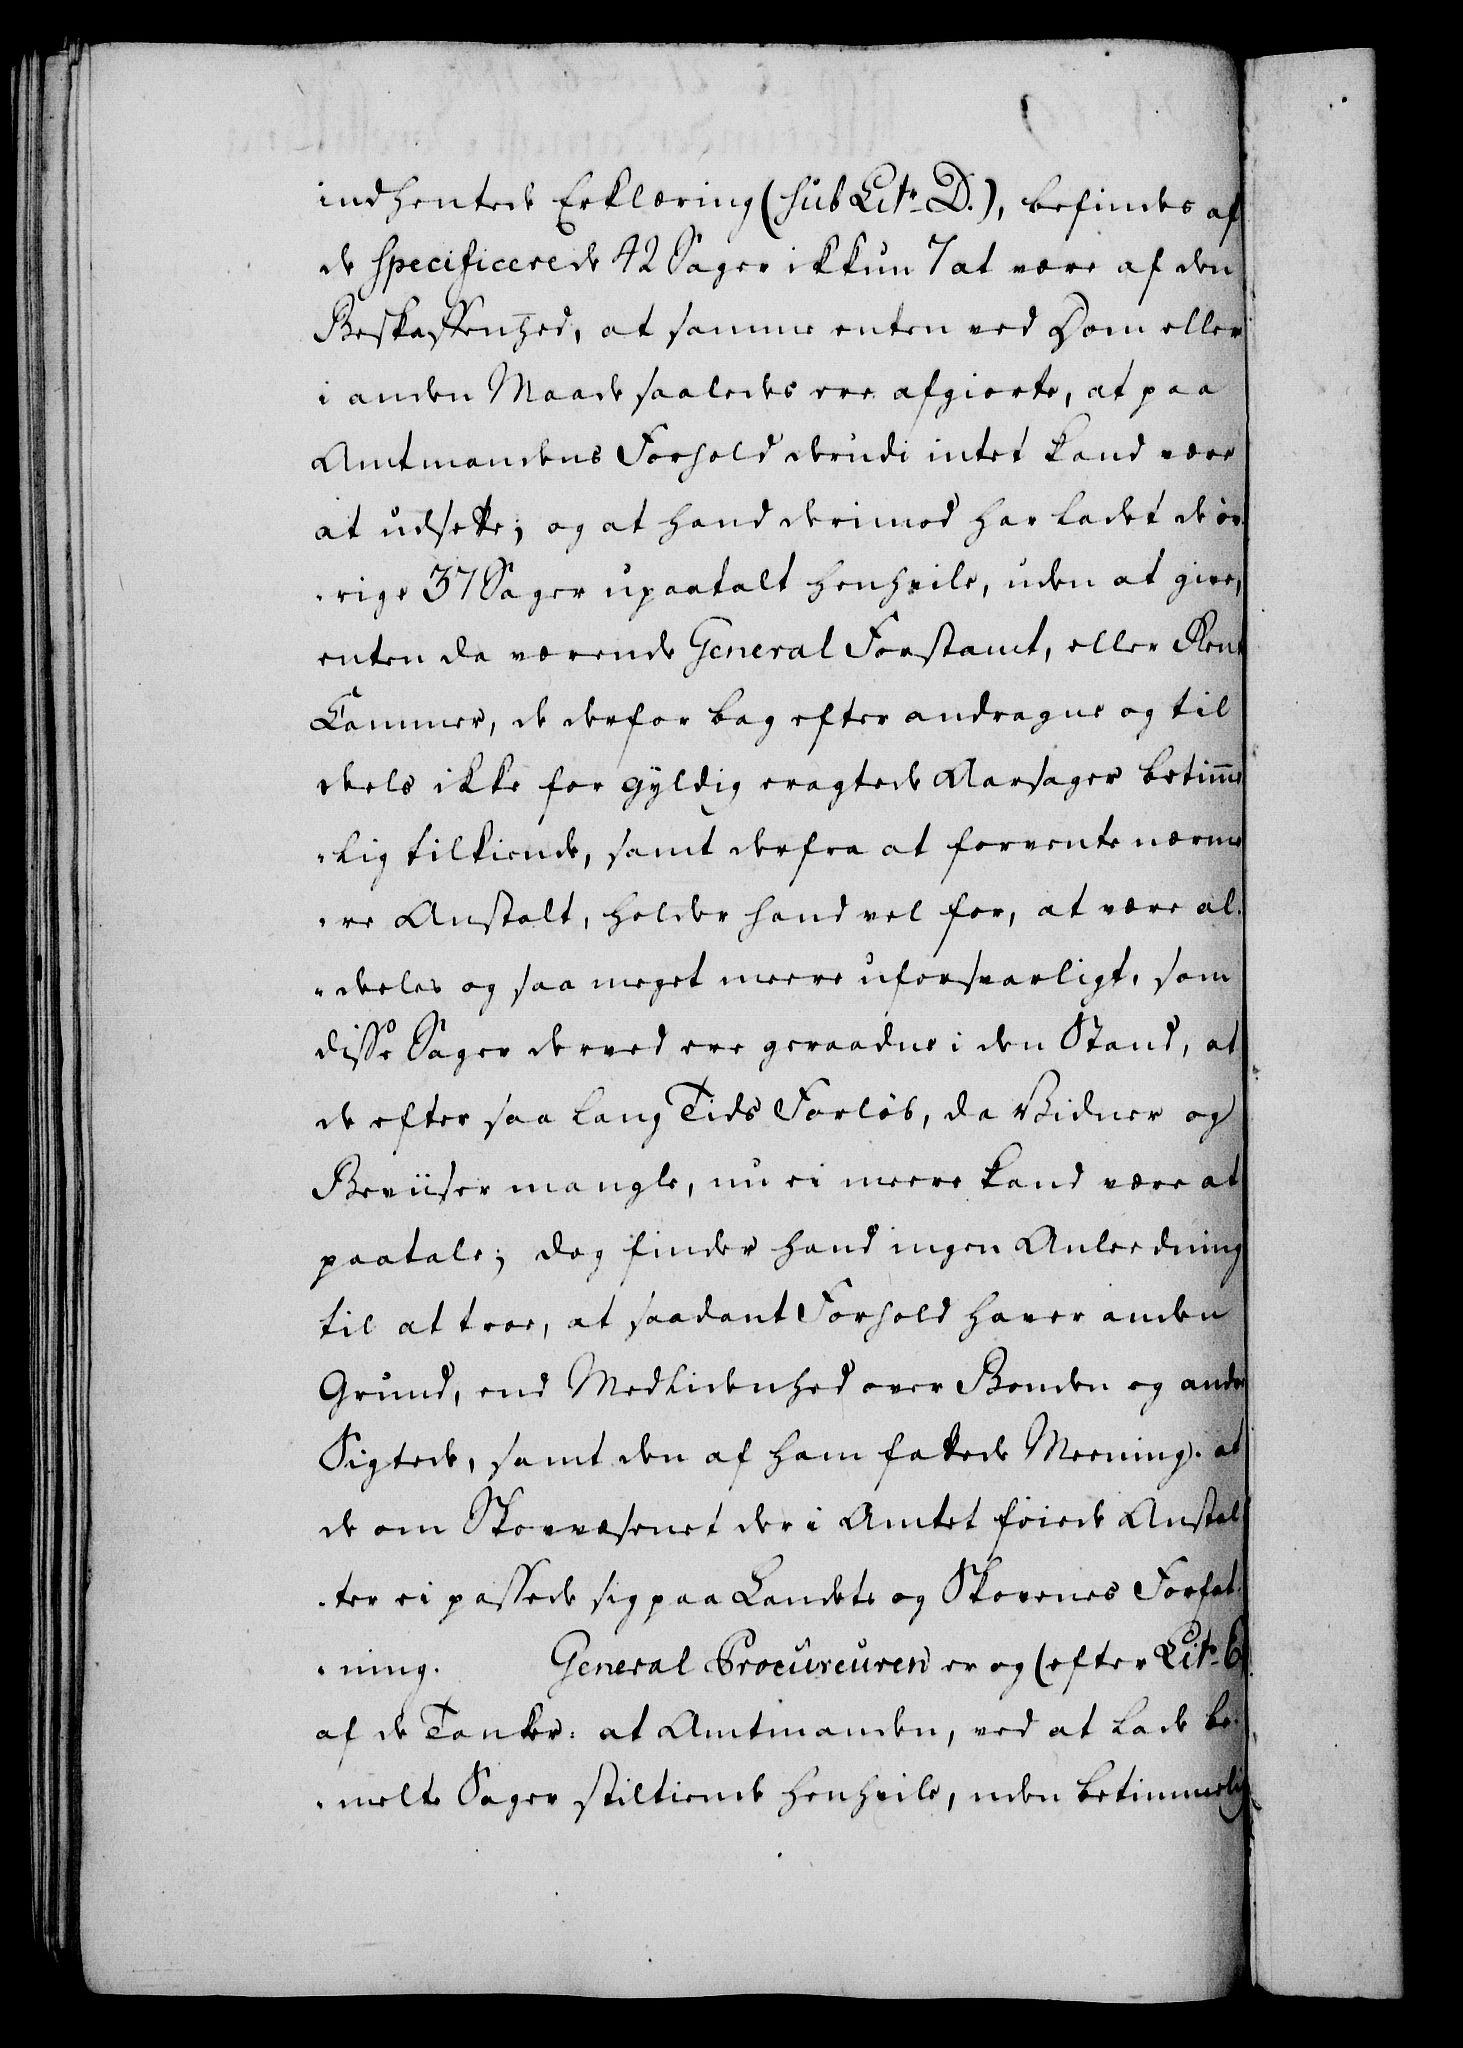 indhentede Erklæring (sub Litr. D.), befindes af
de specificerede 42 Sager ikkun 7 at være af den
Beskaffenhed, at samme enten ved Dom eller
i anden Maade saaledes ere afgiorte, at paa
Amtmandens Forhold derudi intet kand være
at udsette; og at hand derimod har ladet de öv
rige 37 Sager upaatalt henhvile, uden at give,
enten da værende General Forstamt, eller Rent
Cammer, de derfor bag efter andragne og til
deels ikke for gyldig eragtede Aarsager betimme
lig tilkiende, samt derfra at forvente nærme
re Anstalt, holder hand vel for, at være al
deeles og saa meget meere uforsvarligt, som
disse Sager derved ere geraadne i den Stand, at
de efter saa lang Tids Forlöb, da Vidner og
Beviiser mangle, nu ei meere kand være at
paatale; dog finder hand ingen Anleedning
til at troe, at saadant Forhold haver anden
Grund, end Medlidenhed over Bonden og andre
Sigtede, samt den af ham fattede Meening. at
de om Skovvæsenet der i Amtet föiede Anstal
ter ei passede sig paa Landets og Skovenes Forfat
ning. General Procureuren er og (efter Litr.
af de Tanker: at Amtmanden, ved at lade be
melte Sager stiltiende henhvile, uden betimmelig